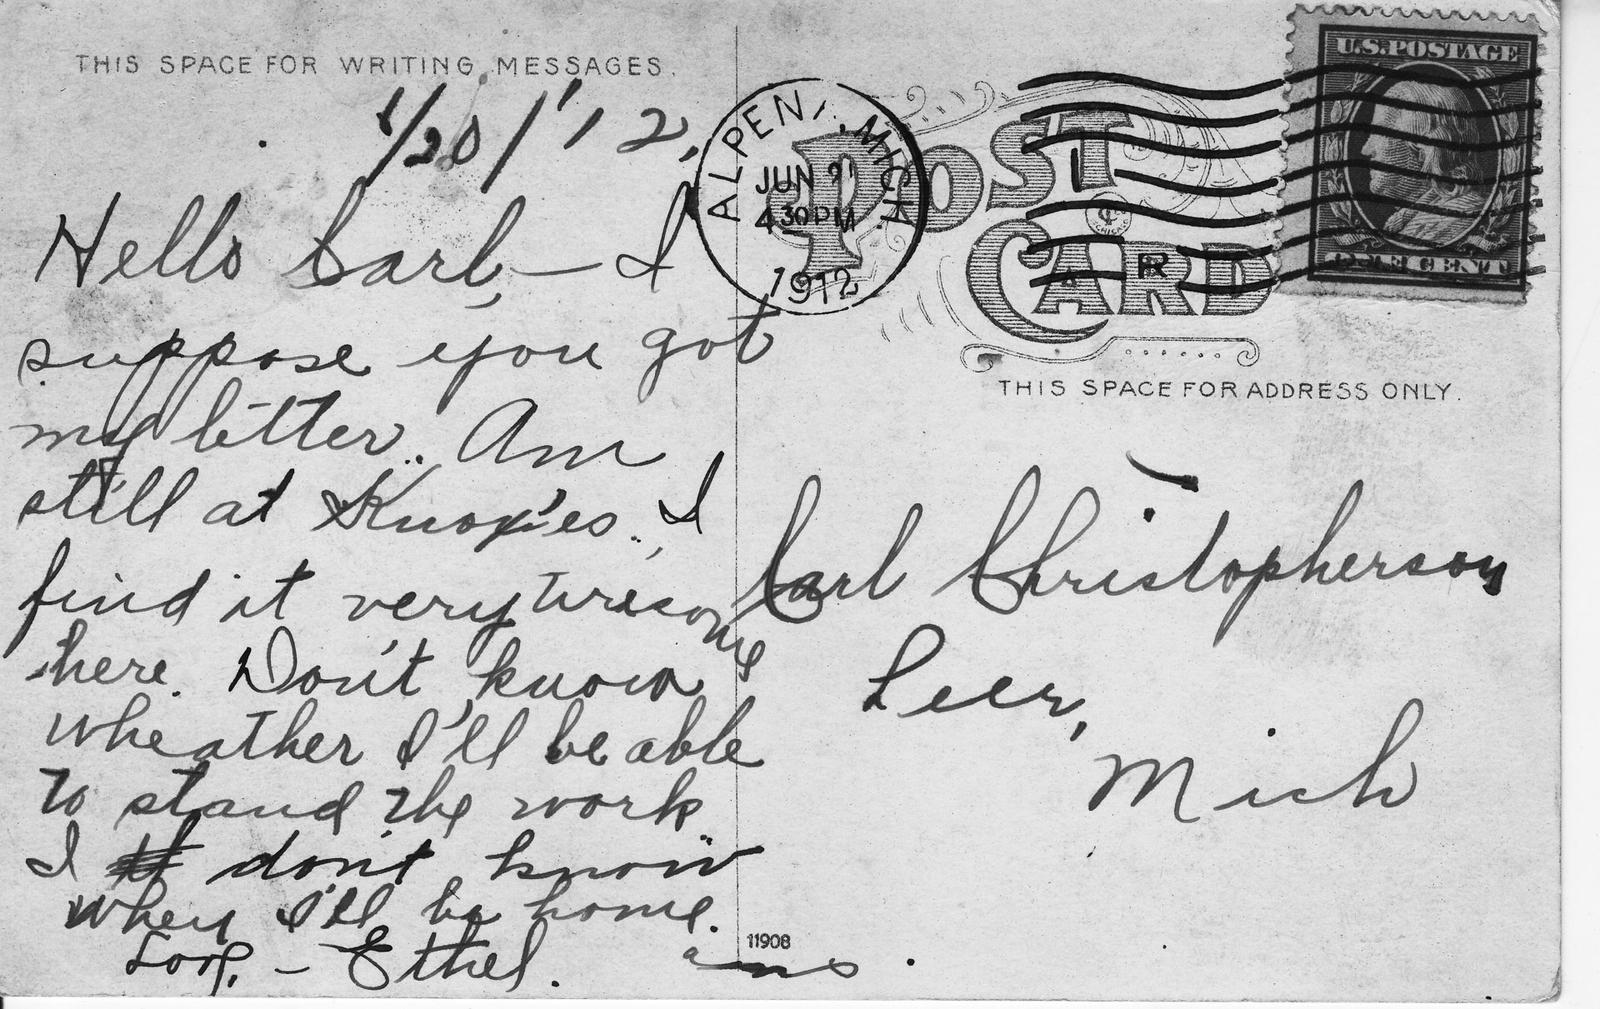 THIS SPACE FOR WRITING MESSAGES.
/20/'12,
Hello Carl, — I
suppose you got
my letter. Am
still at Knox'es. I
find it very tiresome
here. Don't know
wheather I'll be able
to stand the work.
I don't know
when I'll be home.
Love, - Ethel.
ans.
11908
ALPENA, MICH.
JUN 21
430 PM
1912
POST
CARD
U.S. POSTAGE
ONE CENT
THIS SPACE FOR ADDRESS ONLY.
Carl Christopherson
Leer,
Mich